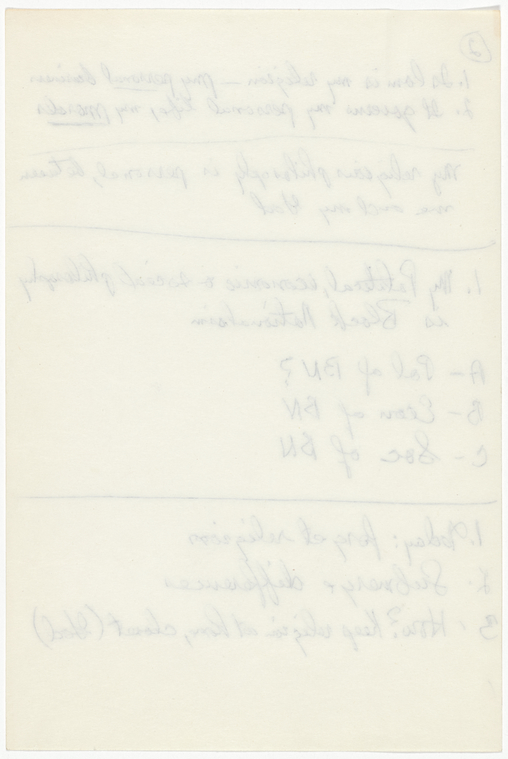 2
1. Islam is my religion – my personal business
2. It governs my personal life, my morals
My religious philosophy is personal, between
me and my God
1. My Political, economic & social philosophy
is Black Nationalism
A – Pol of BN?
B – Econ of BN
C – Soc of BN
1. Today: forget religion
2. Submerge differences
3. How? Keep religion at home, closet (God)